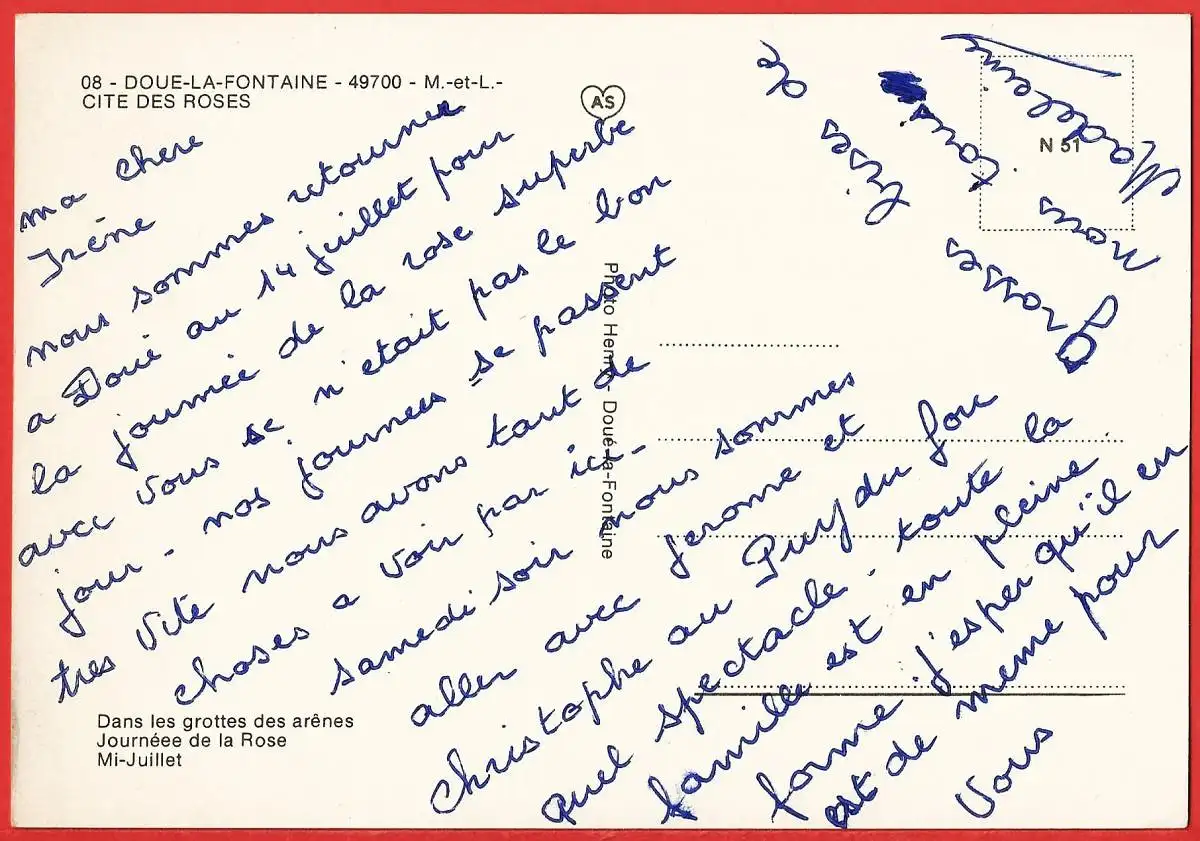 08 - DOUE-LA-FONTAINE - 49700 - M.-et-L.-
CITE DES ROSES
AS
N 51
ma chere
Irène
nous sommes retourner
a Doué au 14 juillet pour
la journée de la rose superbe
avec vous se n'était pas le bon
jour - nos journees se passent
tres vite nous avons tant de
choses a voir par ici -
samedi soir nous sommes
aller avec Jerome et
Christophe au Puy du fou
quel spectacle - toute la
famille est en pleine
forme j'esper qu'il en
est de meme pour
vous
grosses bises de
nous tous
Madeleine
Photo Henry - Doué-la-Fontaine
Dans les grottes des arênes
Journéee de la Rose
Mi-Juillet